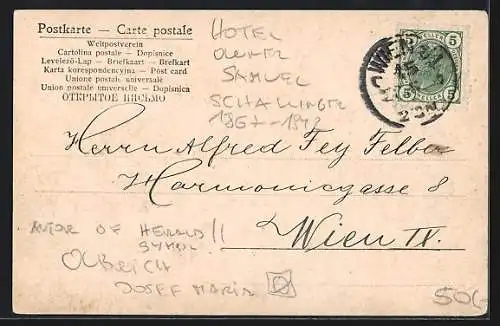 Postkarte — Carte postale
Weltpostverein
Cartolina postale — Dopisnice
Levelező-Lap — Briefkaart — Brefkort
Karta korespondencyjna — Post card
Unione postale universale
Union postale universelle — Dopisnica
ОТКРЫТОЕ ПИСЬМО
HOTEL
OWNER
SAMUEL
SCHALLINGER
1867-1942
WIEN
5 5
HELLER
5 5
Herrn Alfred Fey Felber
Harmoniegasse 8
Wien IX.
AUTOR OF HERALD!!
SYMBOL
OLBRICH
JOSEF MARIA
50(-